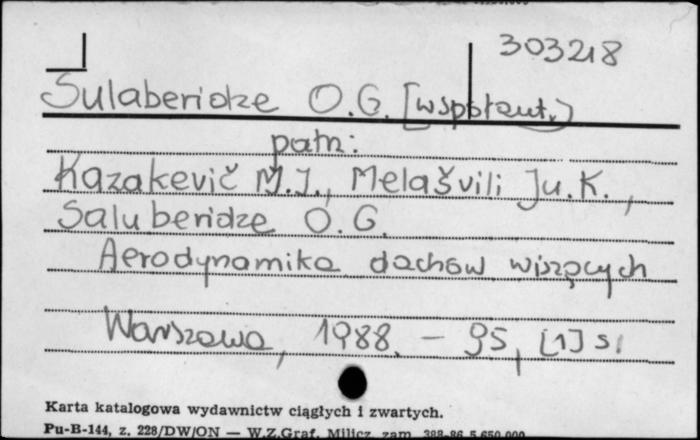 303218
Sulaberidze O.G. [współaut.]
patrz:
Kazakevič M.I., Melašvili Ju.K.,
Saluberidze O.G.
Aerodynamika dachów wiszących
Warszawa, 1988. - 95, [1] s.
Karta katalogowa wydawnictw ciągłych i zwartych.
Pu-B-144, z. 228/DW/ON — W.Z.Graf. Milicz, zam. 388-86 5.650.000